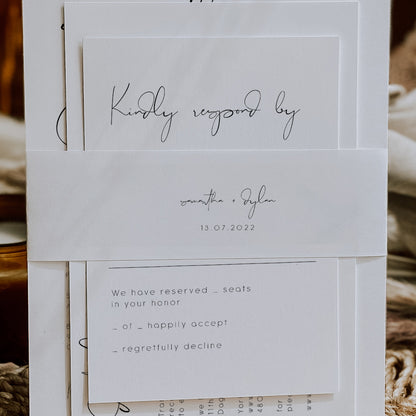 Kindly respond by
samantha + dylan
13.07.2022
We have reserved _ seats
in your honor
_ of _ happily accept
_ regretfully decline